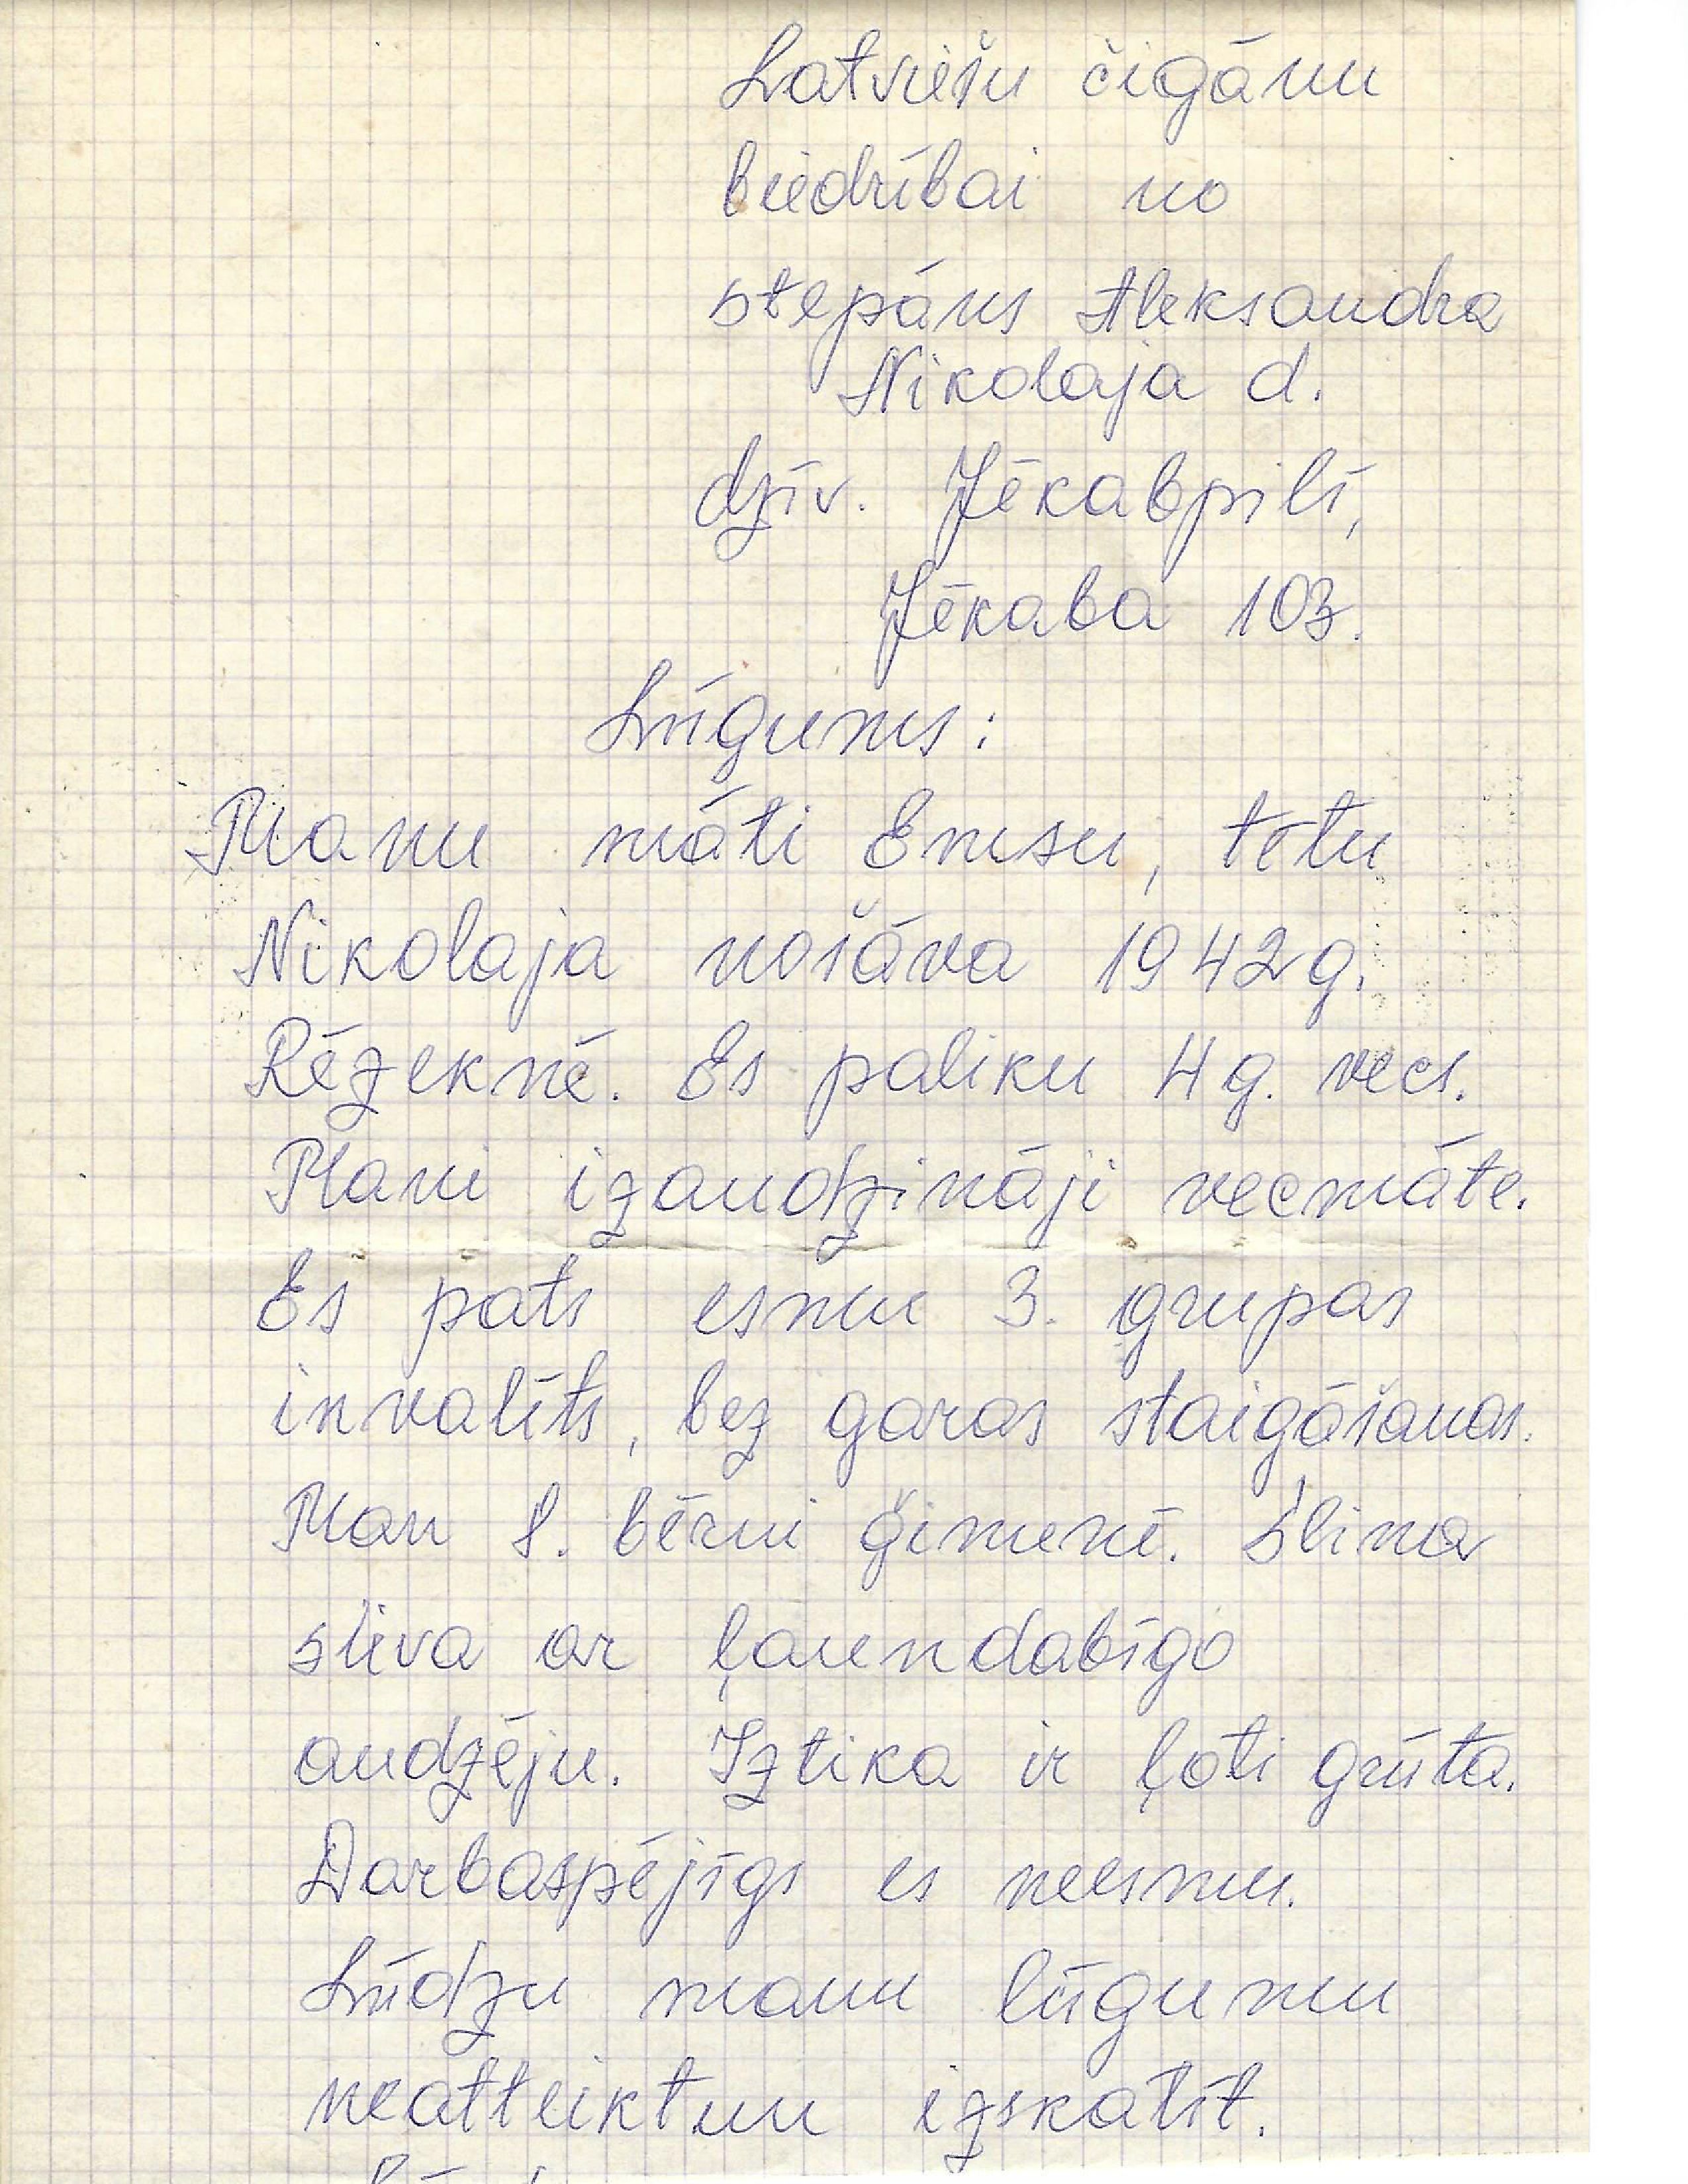 Latviešu čigānu
biedrībai no
Stepāns Aleksandra
Nikolaja d.
dzīv. Jēkabpilī,
Jēkaba 103.
Lūgums:
Manu māti Emsu, tētu
Nikolaja nošāva 1942 g.
Rēzeknē. Es paliku 4 g. vecs.
Mani izaudzināji vecmāte.
Es pats esmu 3. grupas
invalīts, bez garas staigāšanas.
Man 8. bērni ģimenē. Slima
sieva ar ļaundabīgo
audzēju. Iztika ir ļoti grūta.
Darbaspējīgs es neesmu.
Lūdzu manu lūgumu
neatteiktuu izskatīt.